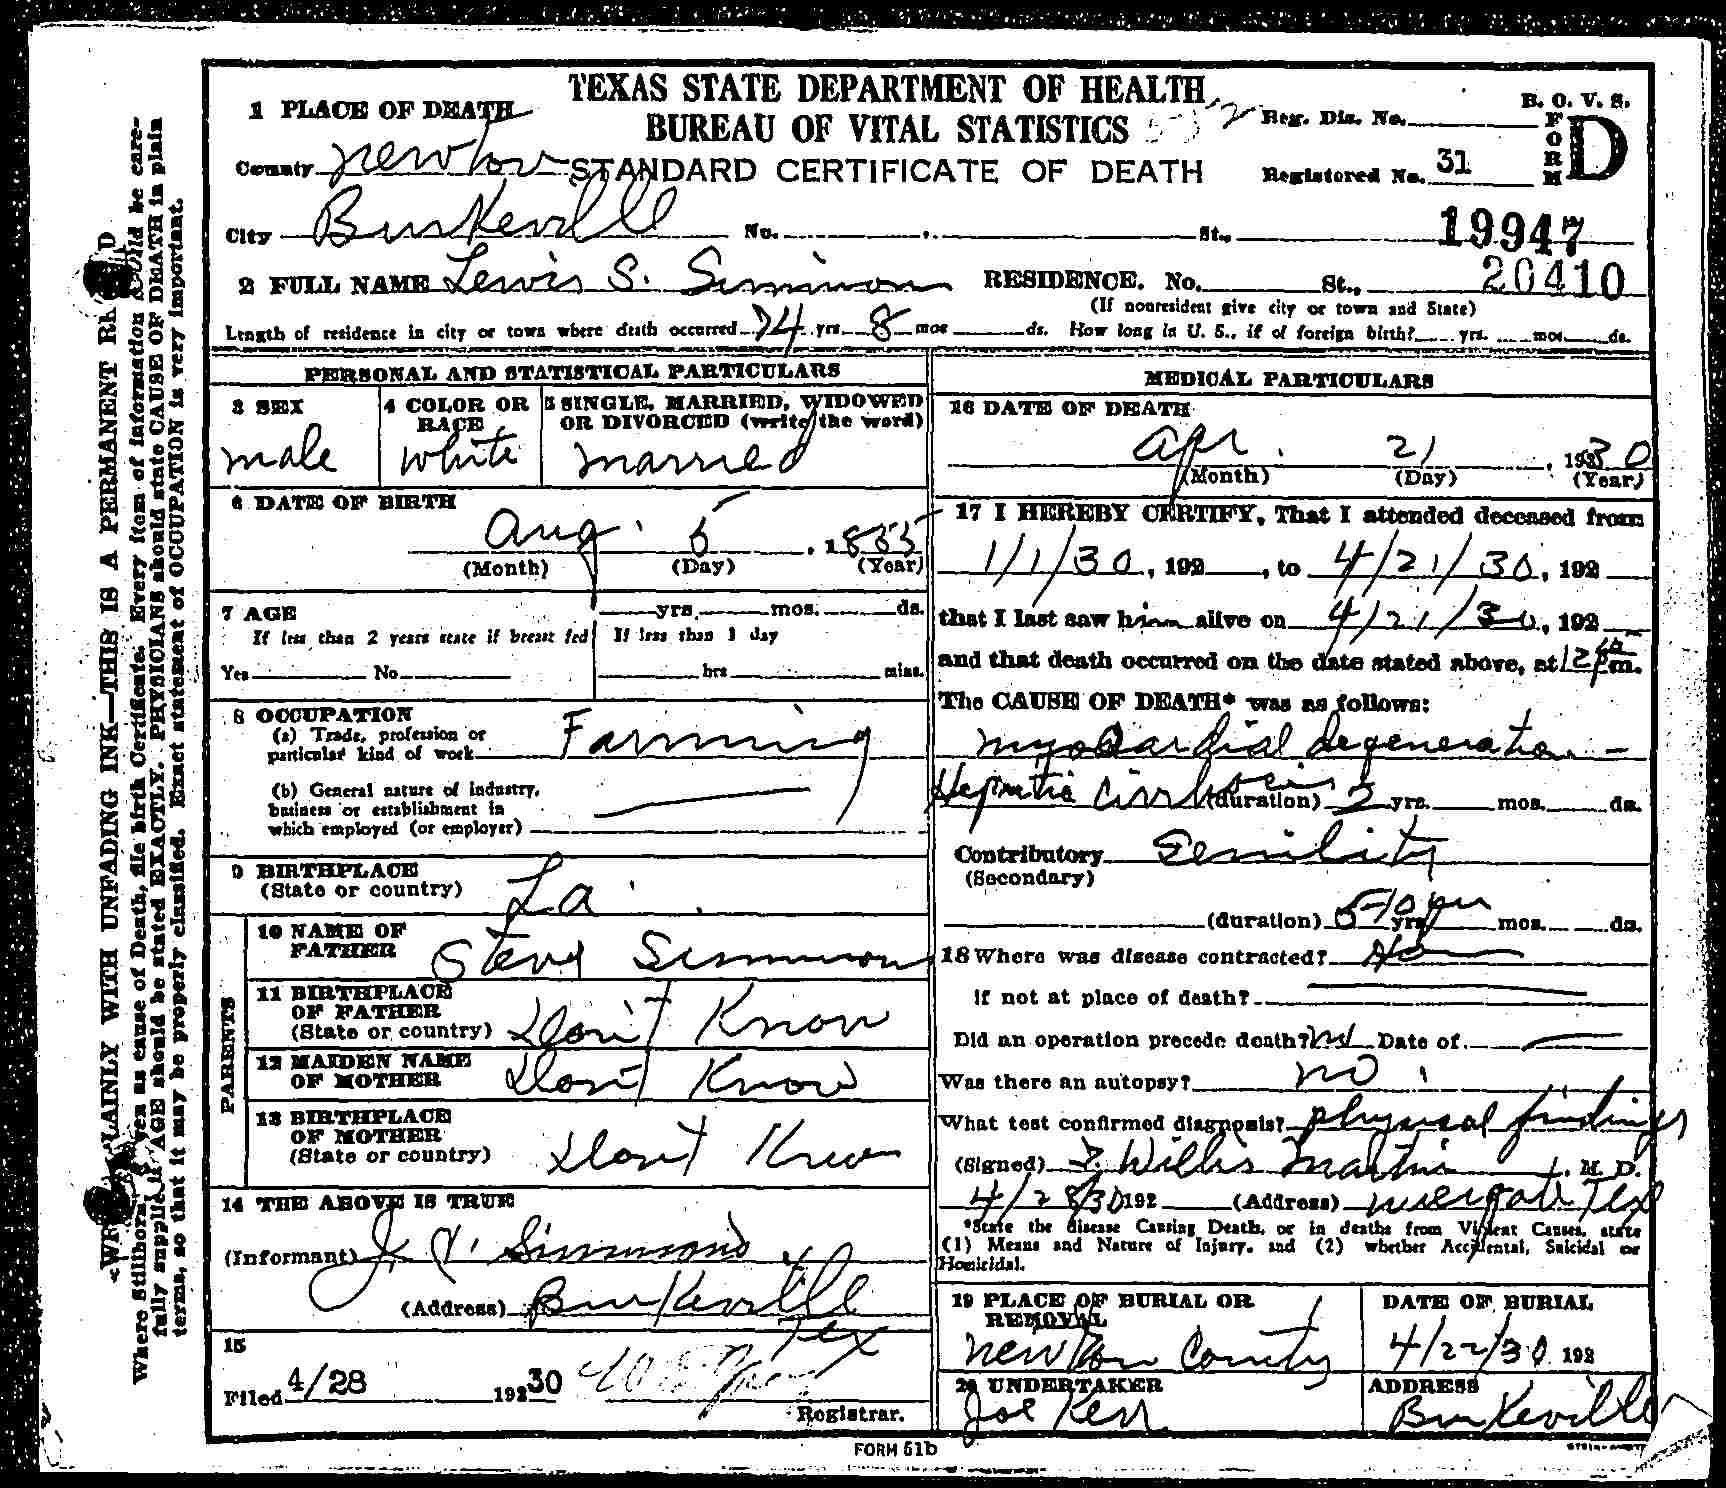 TEXAS STATE DEPARTMENT OF HEALTH
BUREAU OF VITAL STATISTICS
STANDARD CERTIFICATE OF DEATH
B. O. V. S.
FORM D
Reg. Dis. No.
Registered No. 31
19947
20410
1 PLACE OF DEATH
County Newton
City Burkeville No. St.,
2 FULL NAME Lewis S. Simmons RESIDENCE. No. St.,
(If nonresident give city or town and State)
Length of residence in city or town where death occurred 74 yrs. 8 mos ds. How long in U. S., if of foreign birth? yrs. mos. ds.
PERSONAL AND STATISTICAL PARTICULARS
3 SEX
male
4 COLOR OR RACE
white
5 SINGLE, MARRIED, WIDOWED OR DIVORCED (write the word)
married
6 DATE OF BIRTH
Aug. 5, 1855
(Month) (Day) (Year)
7 AGE yrs. mos. ds.
If less than 2 years state if breast fed
Yes No
If less than 1 day
hrs mins.
8 OCCUPATION
(a) Trade, profession or
particular kind of work Farming
(b) General nature of industry,
business or establishment in
which employed (or employer)
9 BIRTHPLACE
(State or country) La.
PARENTS
10 NAME OF FATHER Steve Simmons
11 BIRTHPLACE OF FATHER
(State or country) Don't Know
12 MAIDEN NAME OF MOTHER Don't Know
13 BIRTHPLACE OF MOTHER
(State or country) Don't Know
14 THE ABOVE IS TRUE
(Informant) Simmons
(Address) Burkeville Tex
15
Filed 4/28 192 30
Registrar.
MEDICAL PARTICULARS
16 DATE OF DEATH
Apr. 21, 1930
(Month) (Day) (Year)
17 I HEREBY CERTIFY, That I attended deceased from
1/1/30, 192 , to 4/21/30, 192
that I last saw him alive on 4/21/30, 192
and that death occurred on the date stated above, at 12 m.
The CAUSE OF DEATH* was as follows:
myocardial degeneration -
Hepatic Cirrhosis (duration) 3 yrs. mos. ds.
Contributory Senility
(Secondary)
(duration) 5-10 yrs mos. ds.
18 Where was disease contracted?
If not at place of death?
Did an operation precede death? no Date of
Was there an autopsy? no
What test confirmed diagnosis? physical findings
(Signed) Willis Martin, M. D.
4/28/30 192 (Address) Wiergate Tex
*State the disease Causing Death, or in deaths from Violent Causes, state
(1) Means and Nature of Injury, and (2) whether Accidental, Suicidal or
Homicidal.
19 PLACE OF BURIAL OR REMOVAL
Newton County
DATE OF BURIAL
4/22/30 192
20 UNDERTAKER
Joe Kerr
ADDRESS
Burkeville
FORM 51b
PLAINLY WITH UNFADING INK—THIS IS A PERMANENT
Where Stillborn, given as cause of Death, file birth Certificate. Every item of information should be care-
fully supplied. AGE should be stated EXACTLY. PHYSICIANS should state CAUSE OF DEATH in plain
terms, so that it may be properly classified. Exact statement of OCCUPATION is very important.